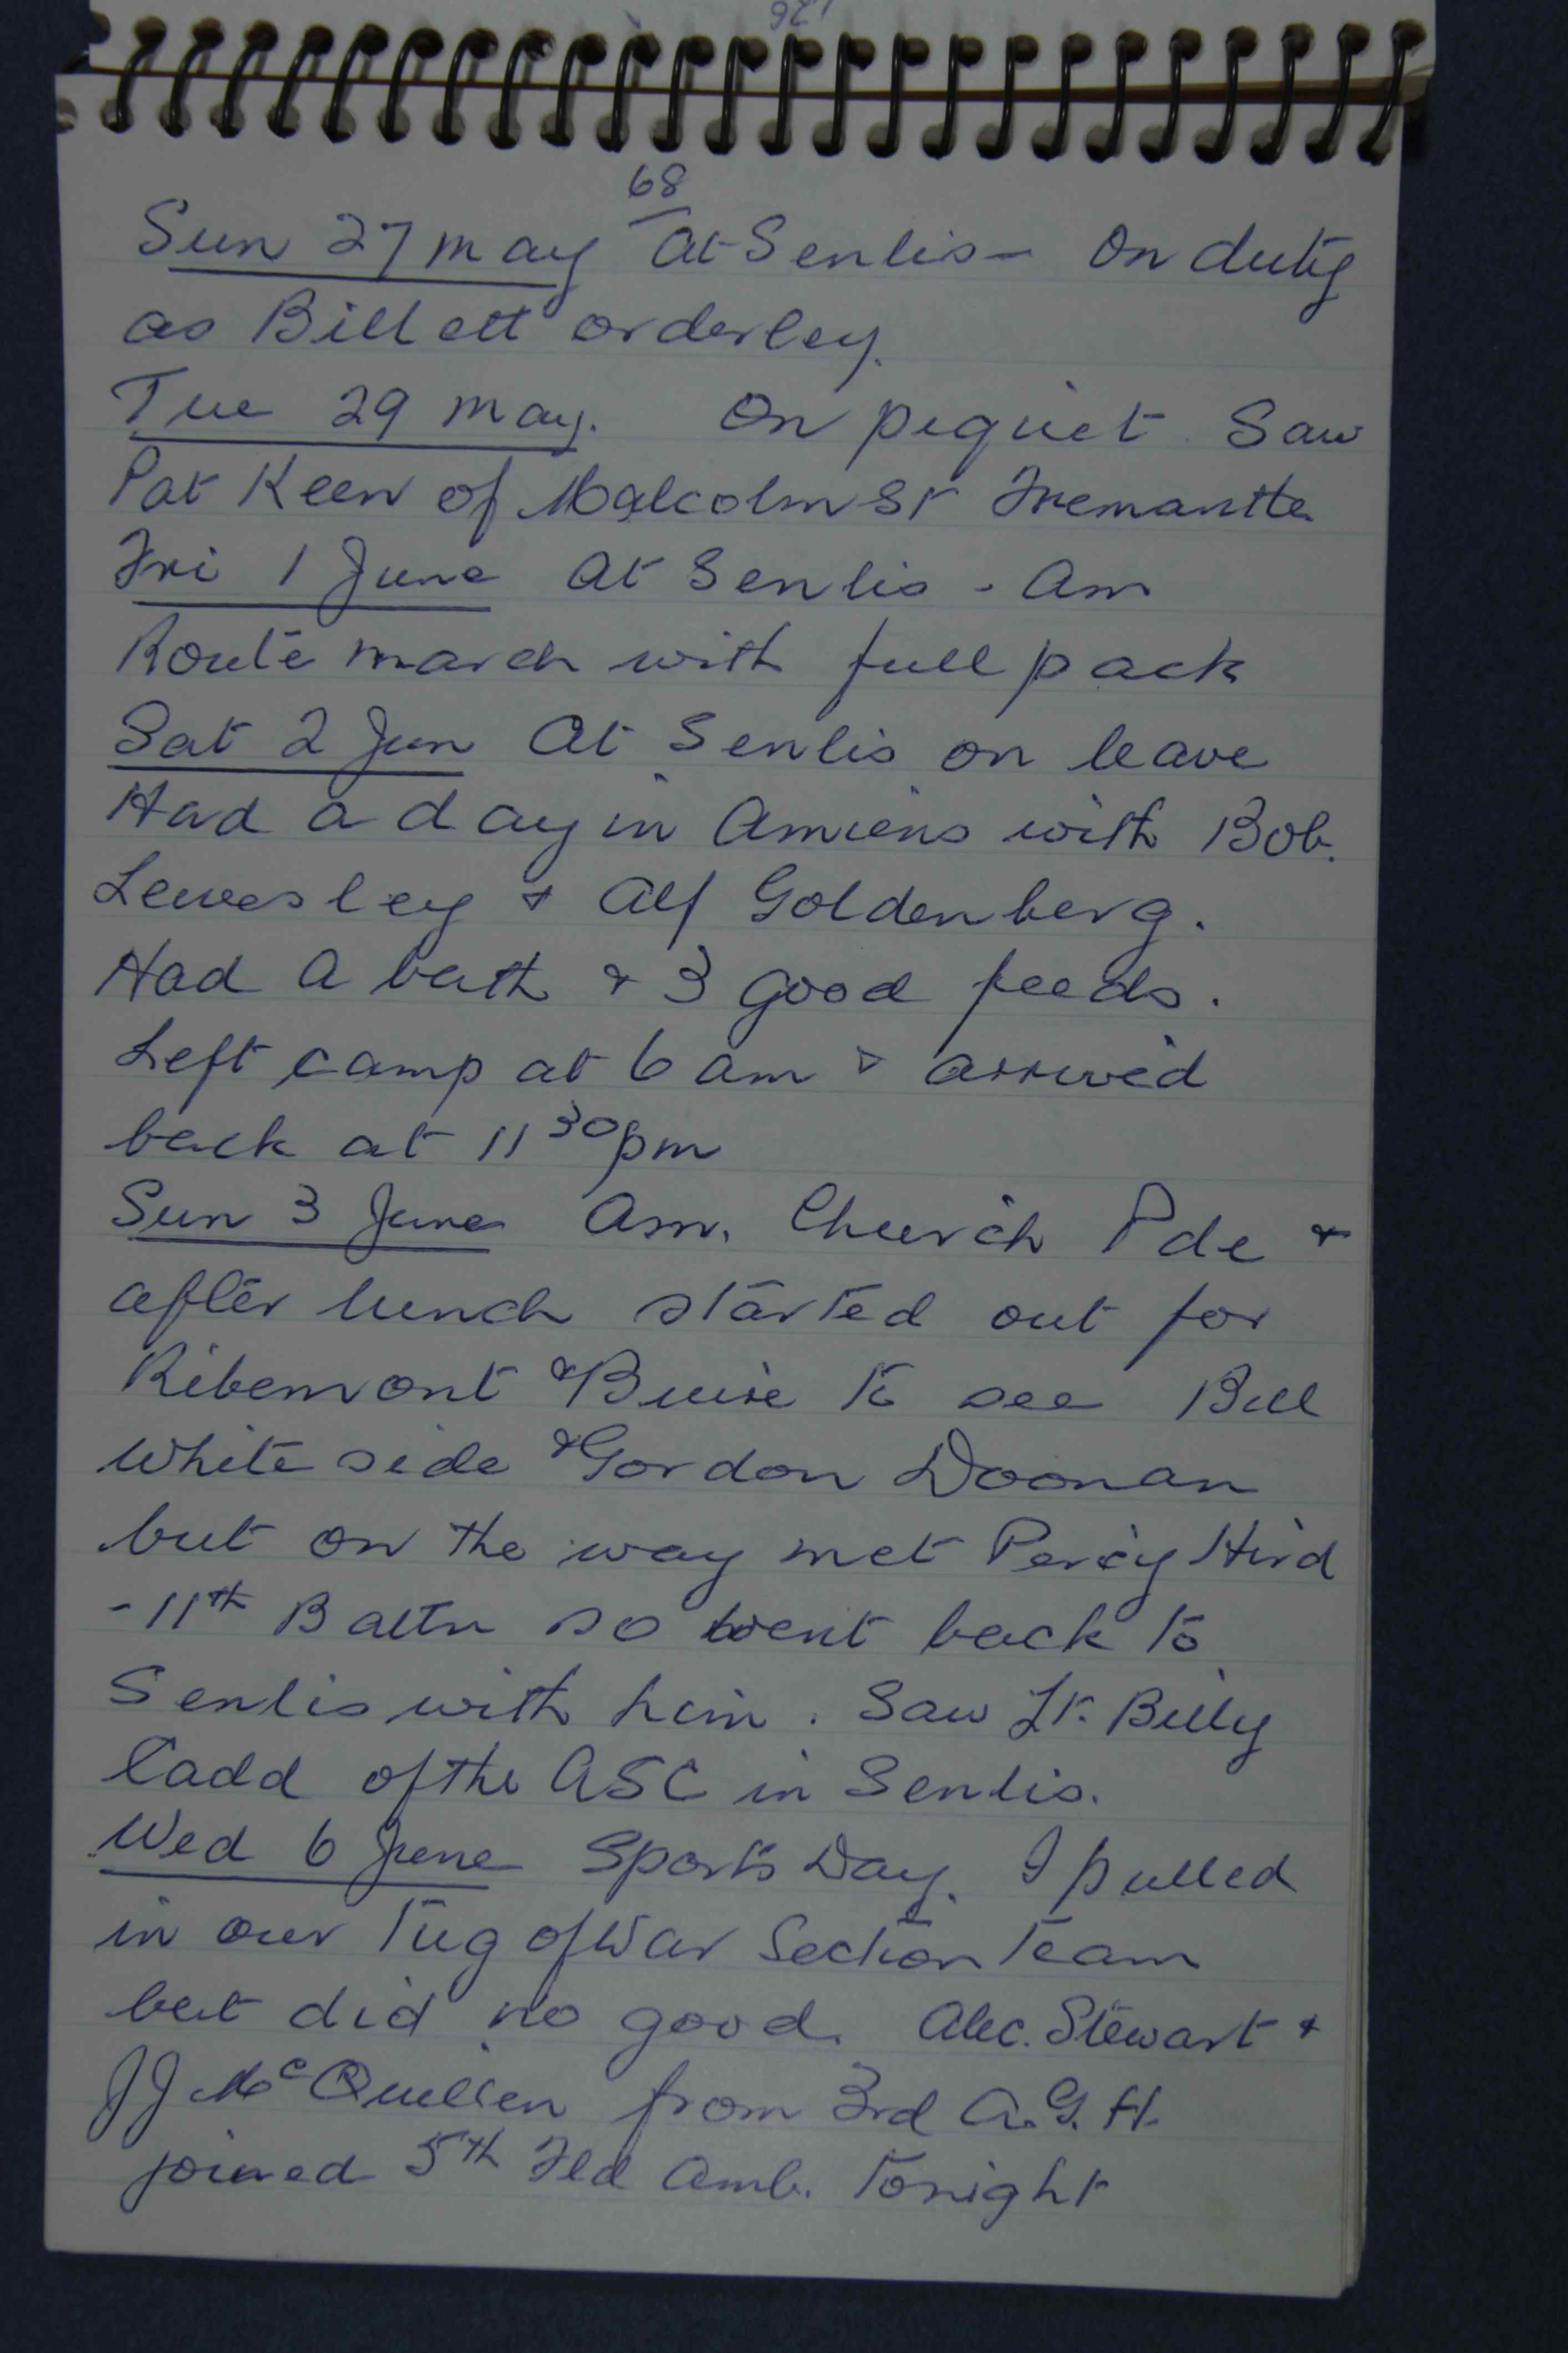 126
68
Sun 27 may at Senlis - On duty
as Billett orderley.
Tue 29 may. On piquet. Saw
Pat Keen of Malcolm St Fremantle
Fri 1 June At Senlis - Am
Route march with full pack
Sat 2 Jun At Senlis on leave
Had a day in Amiens with Bob.
Lewesley + Alf Goldenberg.
Had a bath + 3 good feeds.
Left camp at 6 am + arrived
back at 11 30 pm
Sun 3 June Am. Church Pde +
after lunch started out for
Ribemont + Buire to see Bill
White side + Gordon Doonan
but on the way met Percy Hird
- 11th Battn so went back to
Senlis with him. Saw Lt. Billy
Cadd of the ASC in Senlis.
Wed 6 June Sports Day. I pulled
in our Tug of War Section Team
but did no good. Alec. Stewart +
JJ McQuillen from 3rd A.G.H.
joined 5th Fld Amb. Tonight